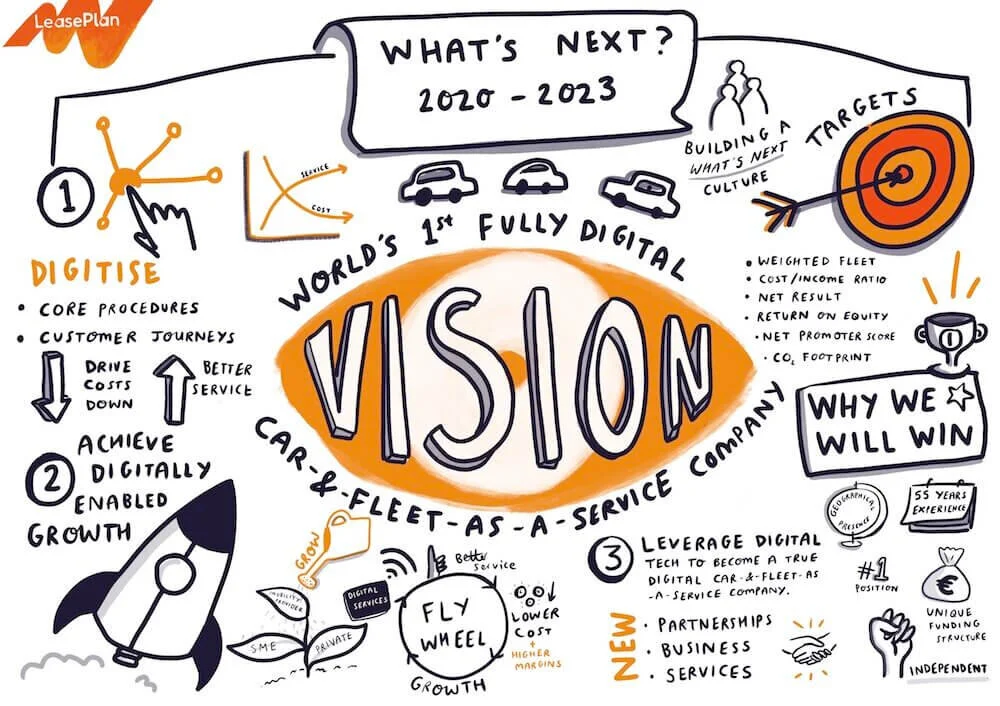 LeasePlan
WHAT'S NEXT?
2020 - 2023
BUILDING A
WHAT'S NEXT
CULTURE
TARGETS
1
SERVICE
COST
DIGITISE
• CORE PROCEDURES
• CUSTOMER JOURNEYS
DRIVE
COSTS
DOWN
BETTER
SERVICE
WORLD'S 1st FULLY DIGITAL
VISION
CAR-&-FLEET-AS-A-SERVICE COMPANY
• WEIGHTED FLEET
• COST/INCOME RATIO
• NET RESULT
• RETURN ON EQUITY
• NET PROMOTER SCORE
• CO2 FOOTPRINT
1
WHY WE
WILL WIN
GEOGRAPHICAL
PRESENCE
55 YEARS
EXPERIENCE
#1
POSITION
€
UNIQUE
FUNDING
STRUCTURE
INDEPENDENT
2
ACHIEVE
DIGITALLY
ENABLED
GROWTH
GROW
MOBILITY
PROVIDER
SME
PRIVATE
DIGITAL
SERVICES
Better
Service
FLY
WHEEL
GROWTH
LOWER
COST
+
HIGHER
MARGINS
3
LEVERAGE DIGITAL
TECH TO BECOME A TRUE
DIGITAL CAR-&-FLEET-AS
-A-SERVICE COMPANY.
NEW
• PARTNERSHIPS
• BUSINESS
• SERVICES